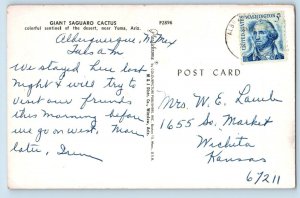 GIANT SAGUARO CACTUS
colorful sentinel of the desert, near Yuma, Ariz.
P2896
Albuquerque, N Mex
7 a.m
We stayed here last
night & will try to
visit our friends
this morning before
we go on west. More
later,
POST CARD
WASHINGTON
5¢
Mrs. W. E.
1655 So. Market
Wichita
Kansas
67211